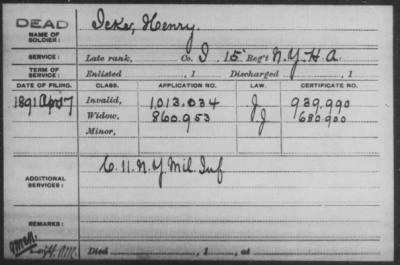 DEAD
NAME OF SOLDIER: Icke, Henry.
SERVICE: Late rank, Co. I 15 Reg't N.Y.H.A.
TERM OF SERVICE: Enlisted , 1 Discharged , 1
DATE OF FILING. CLASS. APPLICATION NO. LAW. CERTIFICATE NO.
1891 Apr 7 Invalid, 1,013.034 J. 939.990
Widow, 860.953 J. 680.900
Minor,
ADDITIONAL SERVICES: C. 11. N.Y. Mil. Inf
REMARKS:
Died , 1 , at